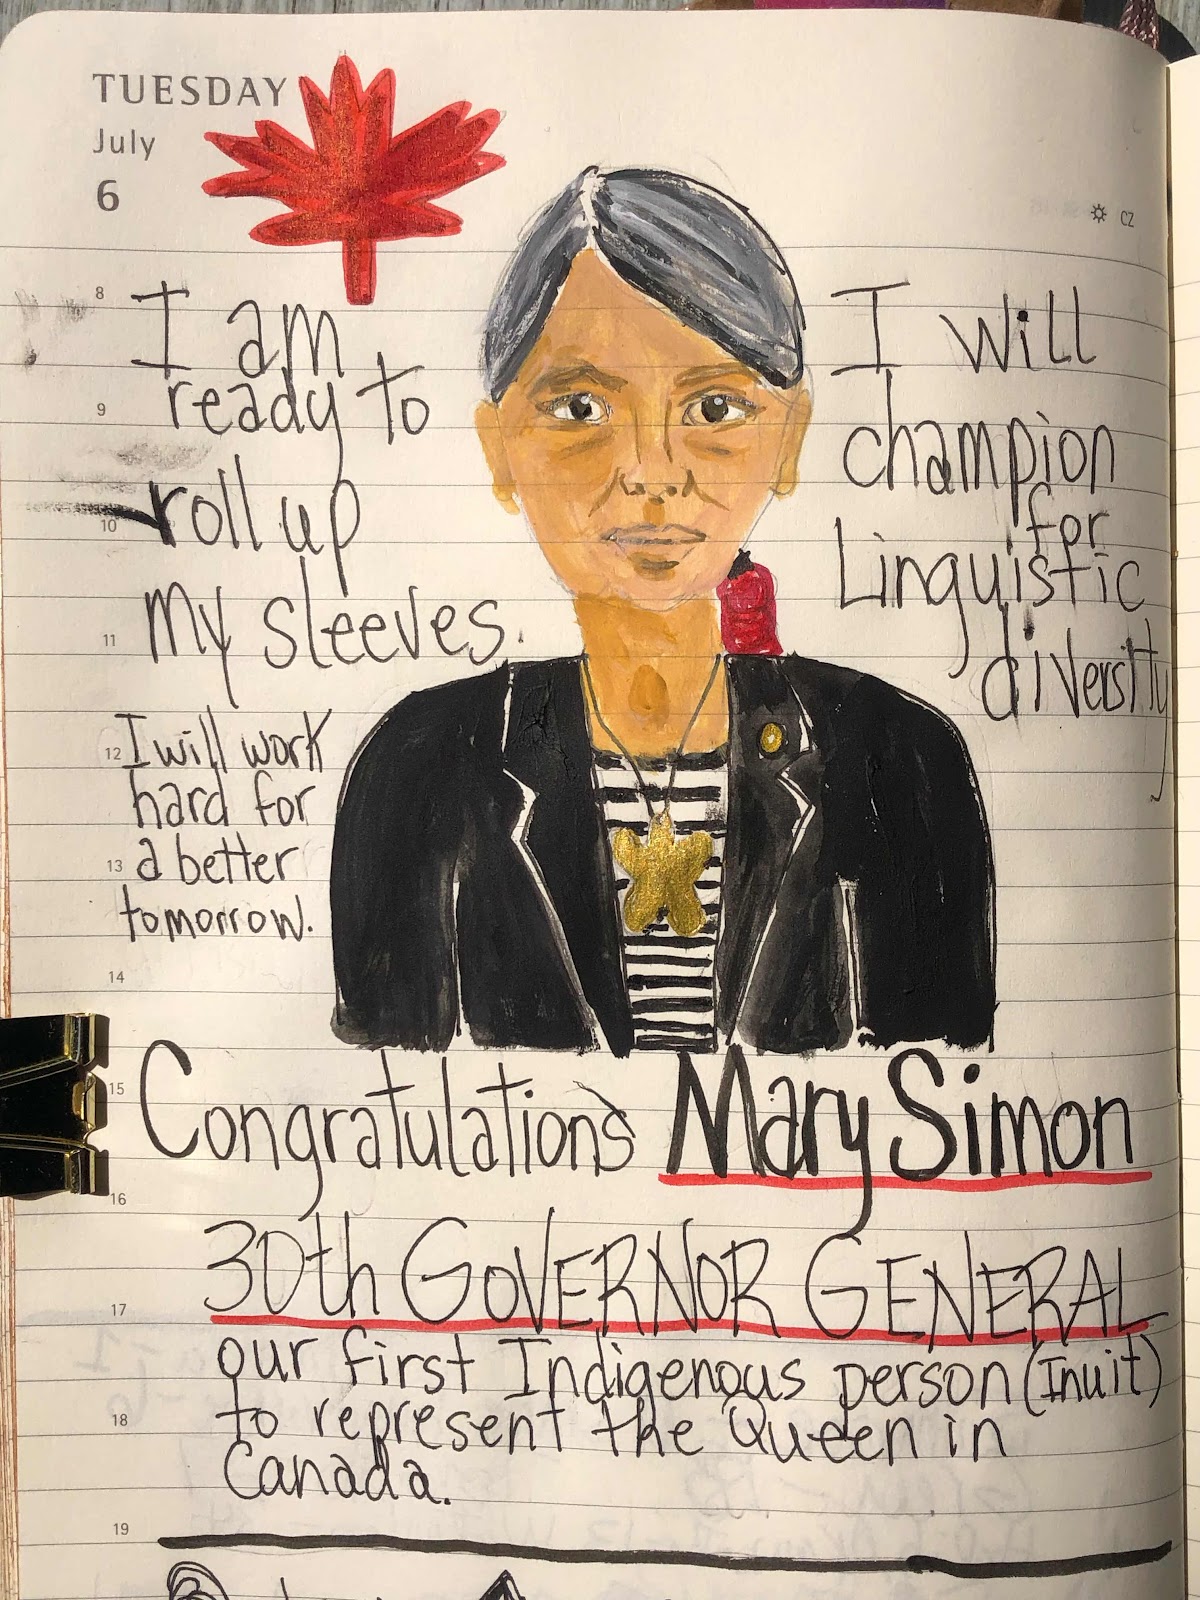 TUESDAY
July
6
CZ
I am
ready to
roll up
my sleeves.
I will work
hard for
a better
tomorrow.
I will
champion
for
Linguistic
diversity
8
9
10
11
12
13
14
15
16
17
18
19
Congratulations Mary Simon
30th GOVERNOR GENERAL
our first Indigenous person (Inuit)
to represent the Queen in
Canada.